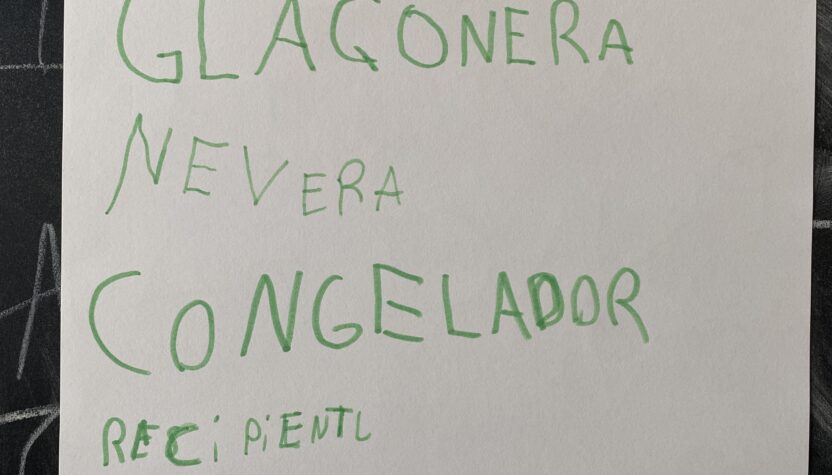 GLAÇONERA
NEVERA
CONGELADOR
RECiPiENTL